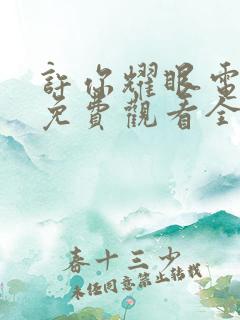 許你耀眼電
免費觀看全
春十三少
未经同意禁止转载